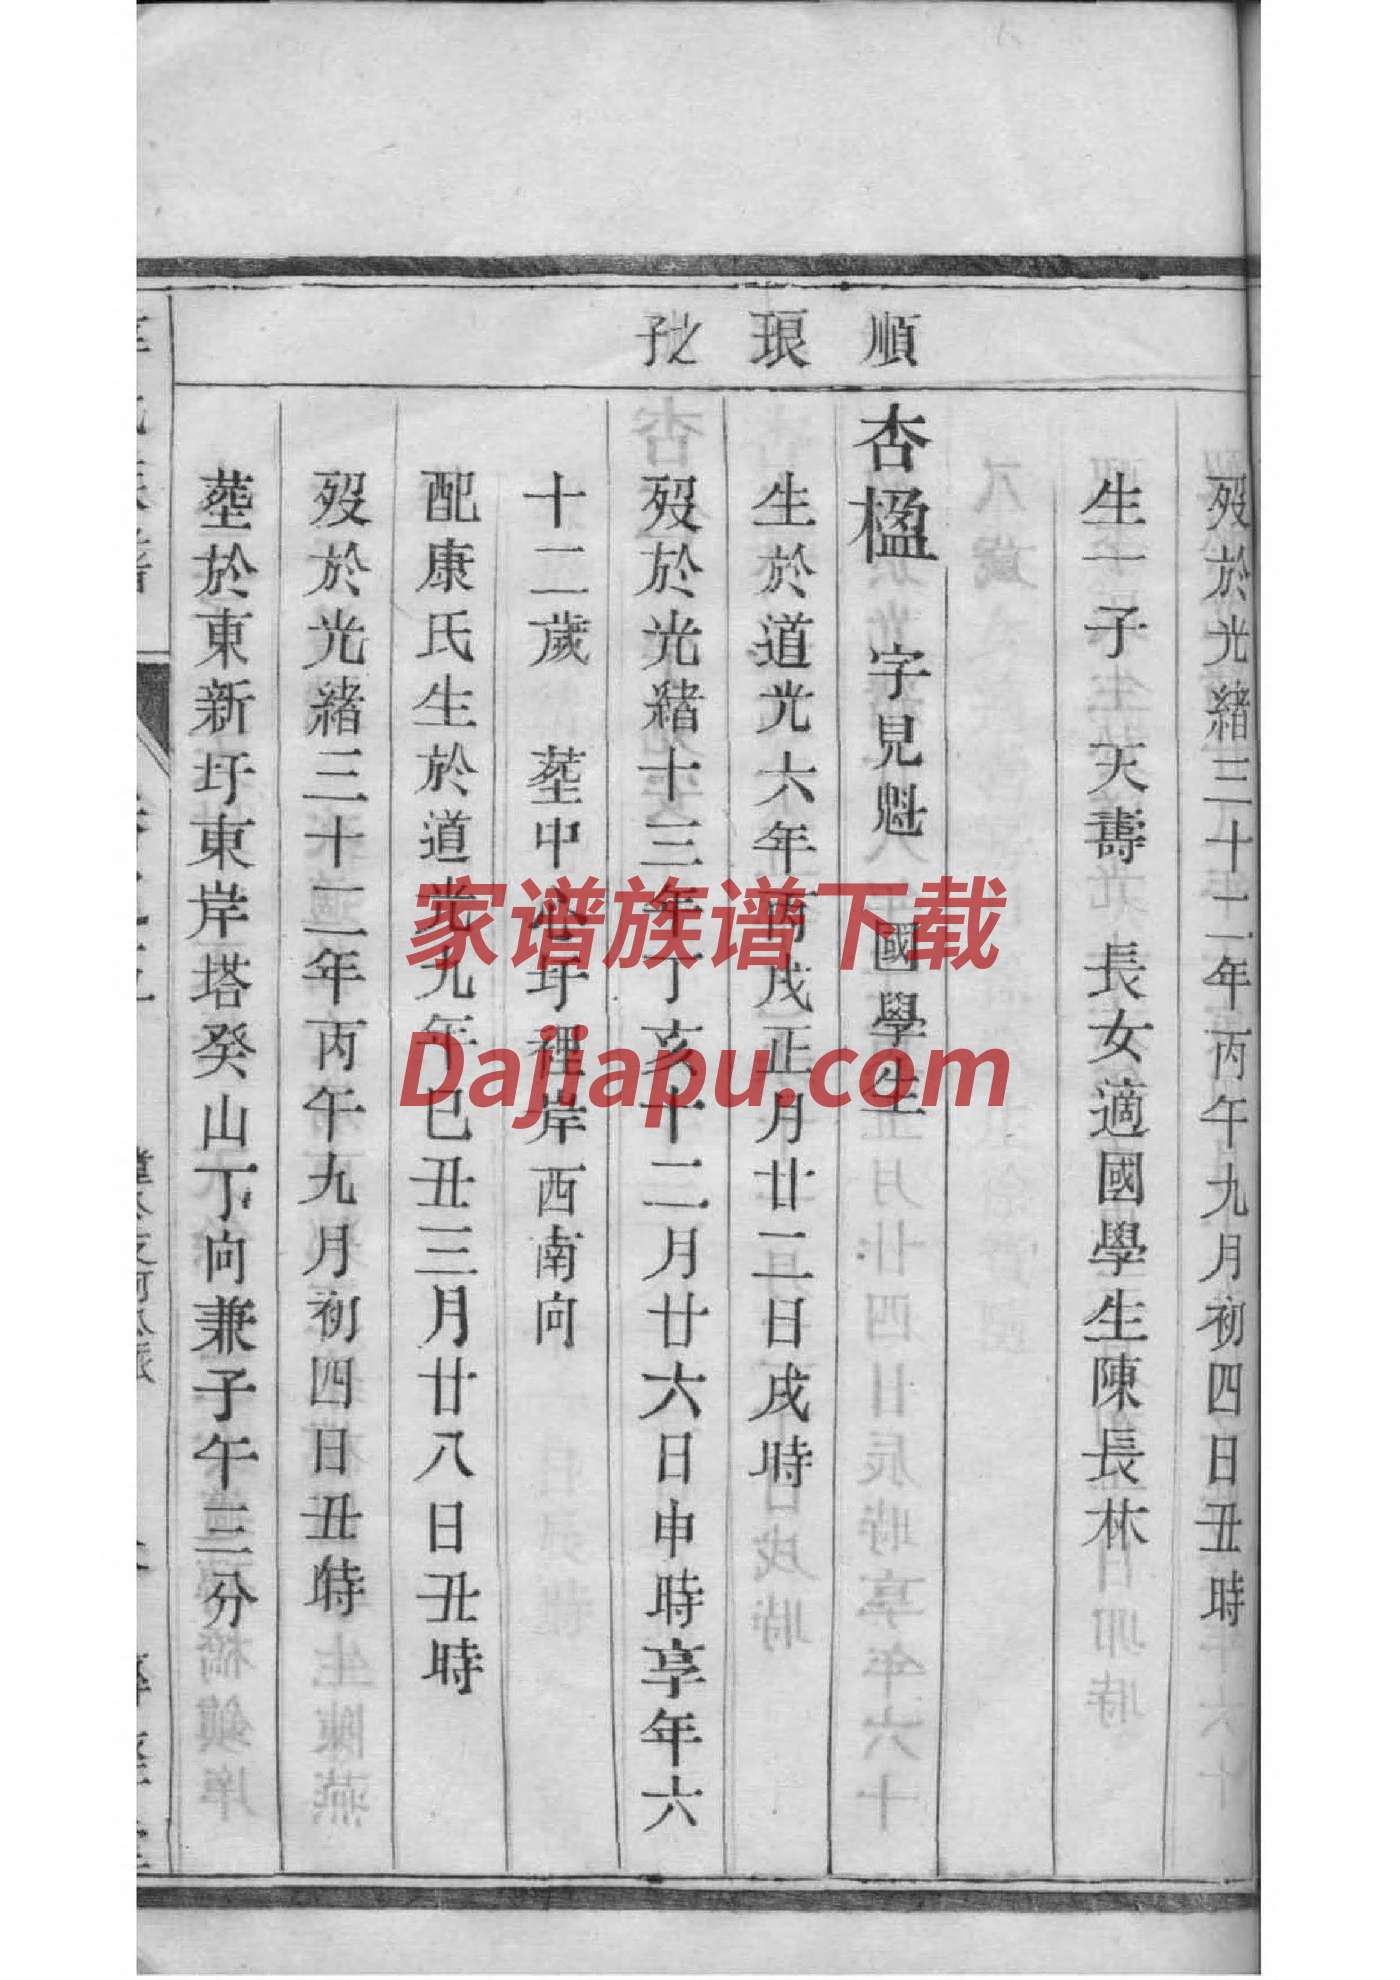 歿於光緒三十二年丙午九月初四日丑時
生一子 天壽 長女適國學生陳長林
順 琅 之 孖
杏楹 字見魁 國學生
生於道光六年丙戌正月廿二日戌時
歿於光緒十三年丁亥十二月廿六日申時享年六
十二歲 塟中心圩裡岸西南向
配康氏生於道光九年巳丑三月廿八日丑時
歿於光緒三十二年丙午九月初四日丑時
塟於東新圩東岸塔癸山丁向兼子午三分
家谱族谱下载
Dajiapu.com